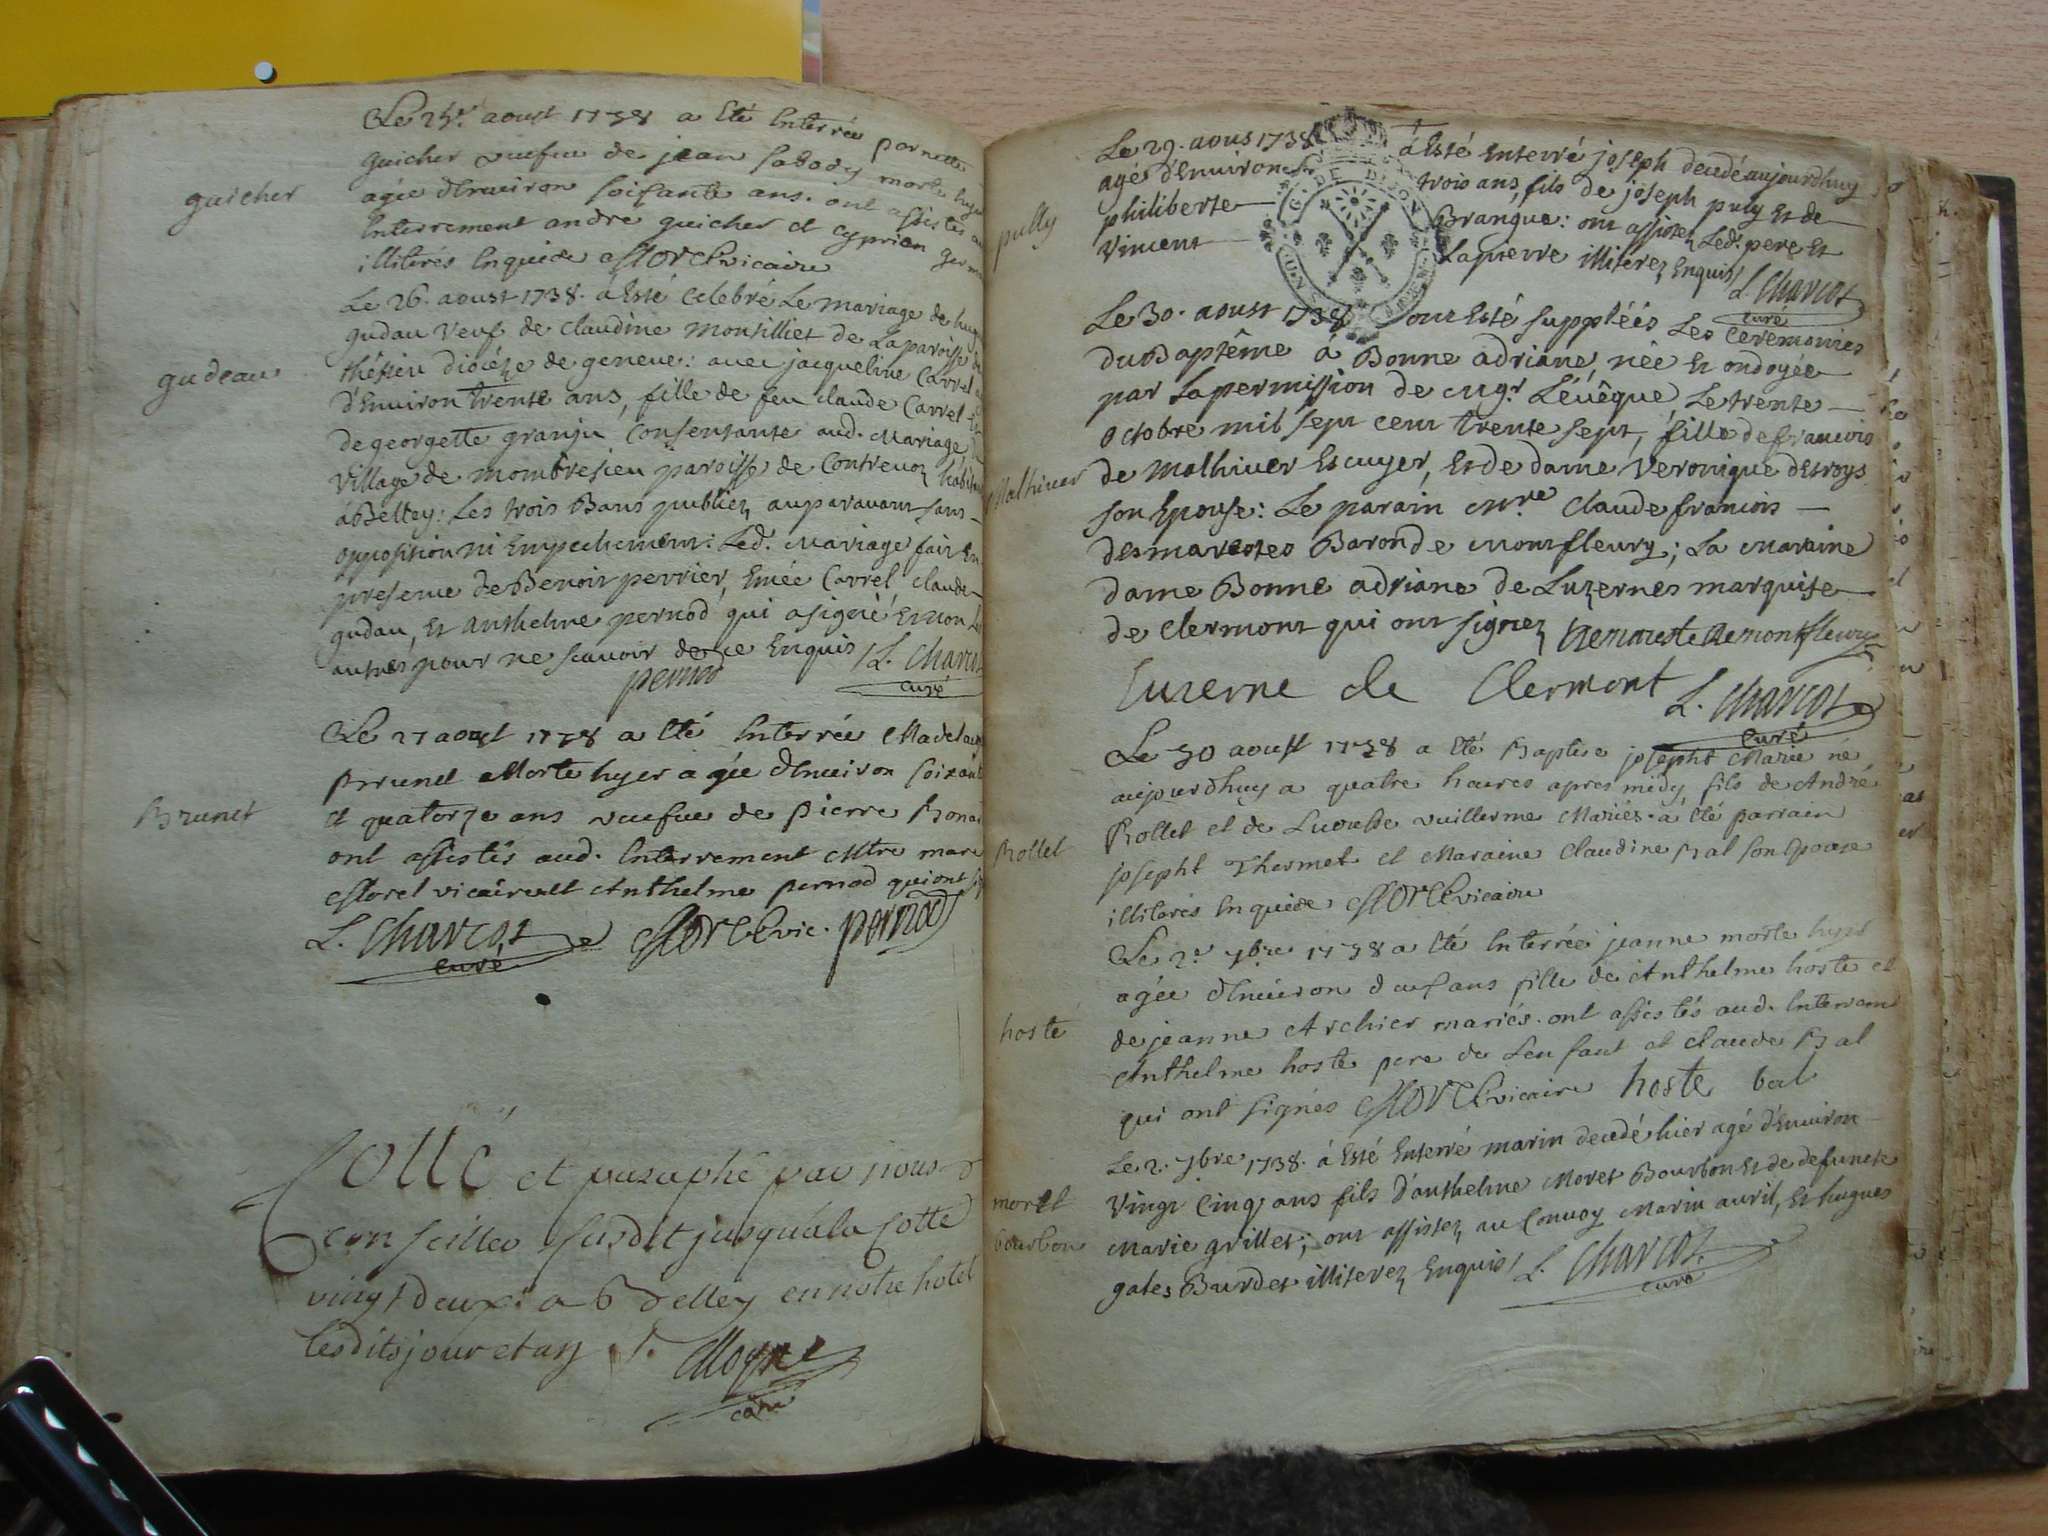 guicher
Le 25e. aoust 1738 a eté Interrée pernette
guicher veufue de jean sabody morte hyer
agée d'Enuiron soisante ans. ont assistés au
Interrement andré guicher et cyprien
illiterés Enquis Morel vicaire
gudeau
Le 26. aoust 1738. à Esté celebré Le mariage de
gudau veuf de claudine monsilliet de La paroisse
diocéze de geneue: auec jacqueline Carrel
d'Enuiron trente ans, fille de feu claude Carrel Et
de georgette granju consentante aud. Mariage
village de mombresieu paroisse de Contreuoz
à Belley: Les trois Bans publiez auparauant sans
opposition ni Empechement: Led. Mariage fait En
presence de Benoit perrier, Emée Carrel, claude
gudau, Et anthelme pernod qui a signé Et non Les
autres pour ne scauoir de ce Enquis / L. Charcot
pernod curé
Brunet
Le 27 aoust 1738 a eté Interrée Madelaine
Brunet Morte hyer agée d'Enuiron soixante
et quatorze ans veufue de Pierre
ont assistés aud. Interrement Mtre marc
Morel vicaire et Anthelme pernod qui ont
L. Charcot Morel vic. pernod
curé
Cotté et paraphé par nous
conseiller susdit jusqua la cotte
vingt deux. a Belley en notre hotel
lesdits jour et an
pully
Le 29. aous 1738 à Esté Enterré joseph decedé aujourdhuy
agé d'Enuiron trois ans, fils de joseph puly Et de
philiberte Brangue: ont assistez Led. pere Et
Vincent Lapierre illiterez Enquis / L. Charcot
curé
Malhiuer
Le 30. aoust 1738 ont Esté suppléés Les ceremonies
du Baptême à Bonne adriane, née Et ondoyée
par La permission de Mgr. L'éuêque Le trente
octobre mil sept cent trente sept, fille de francois
de Malhiuer Escuyer, Et de dame Veronique desroys
son Epouse: Le parain Mre claude francois
desmarestes Baron de Montfleury; La Maraine
dame Bonne adriane de Luzernes marquise
de clermont qui ont signez Demareste de montfleury
Luzerne de Clermont L. Charcot
curé
Rollet
Le 30 aoust 1738 a eté Baptise josepht Marie né
aujourdhuy a quatre heures apres midy fils de André
Rollet et de vuillerme Mariés. a eté parrain
josepht Thermet et Maraine Claudine Bal son Epouse
illiterés Enquis Morel vicaire
hoste
Le 2e 7bre 1738 a eté Interrée jeanne morte hyer
agée d'Enuiron ans fille de Anthelme hoste et
de jeanne Archier mariés. ont assistés aud. Interrement
Anthelme hoste pere de L'enfant et claude Bal
qui ont signés Morel vicaire hoste bal
morel
bourbon
Le 2. 7bre 1738. à Esté Enterré marin decedé hier agé d'Enuiron
Vingt Cinq ans fils d'anthelme Morel Bourbon Et de defuncte
Marie grillet; ont assistez au Conuoy Marin auril, Et hugues
gales Burdet illiterez Enquis / L. Charcot.
curé